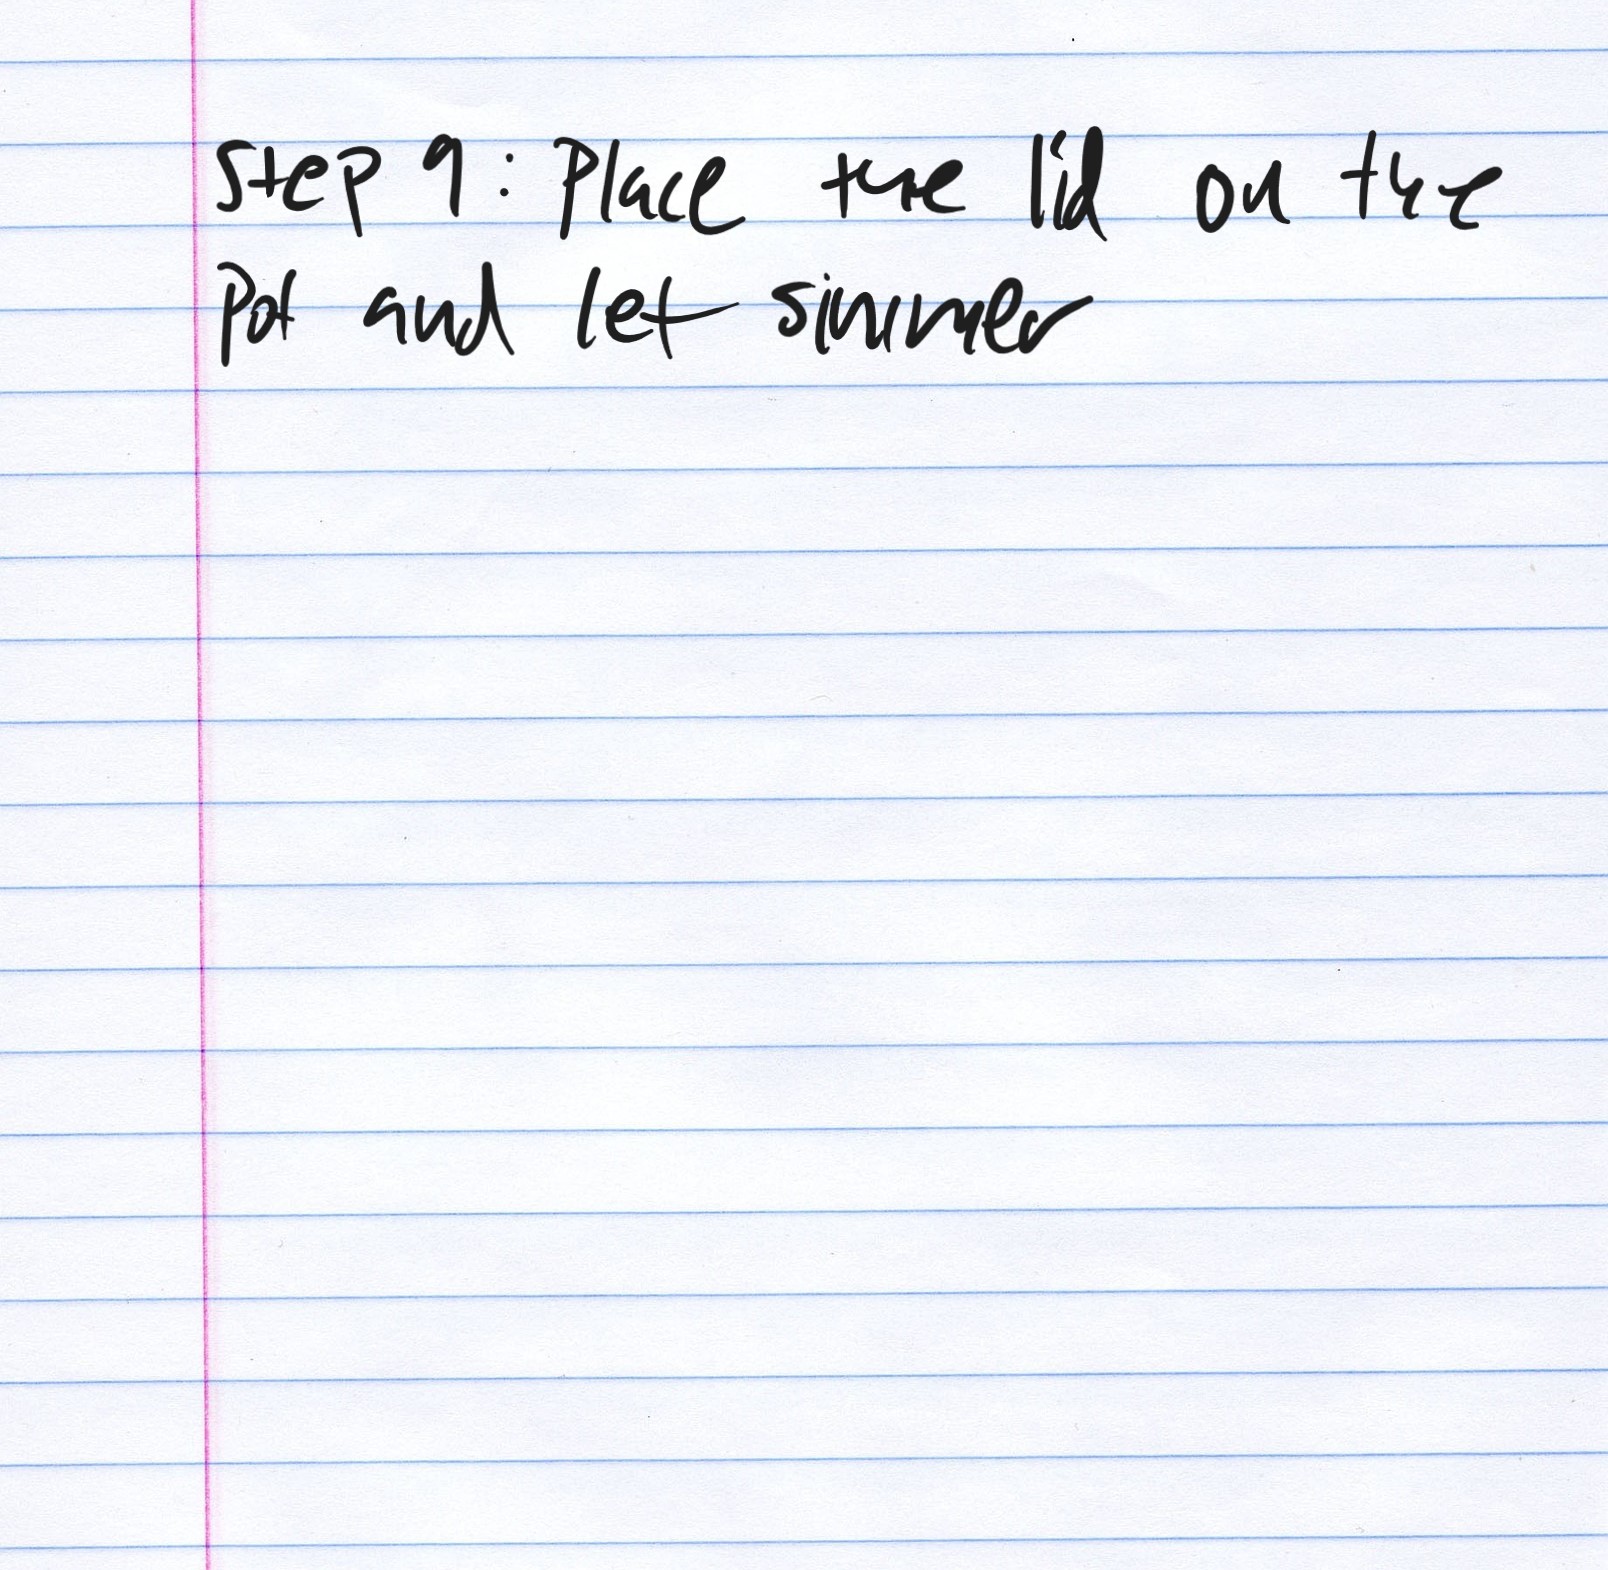 Step 9: Place the lid on the
Pot and let simmer